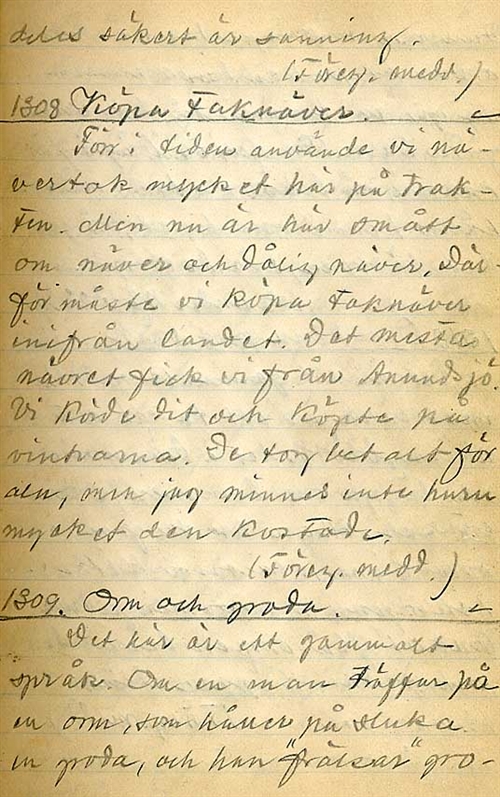 dels säkert är sanning.
(Föreg. medd.)
1308 Köpa Taknäver.
Förr i tiden använde vi nä-
vertak mycket här på trak-
ten. Men nu är här smått
om näver och dålig näver. Där-
för måste vi köpa taknäver
inifrån landet. Det mesta
nävret fick vi från Anundsjö.
Vi körde dit och köpte på
vintrarna. De tog betalt för
aln, men jag minnes inte huru
mycket den kostade.
(Föreg. medd.)
1309. Orm och groda.
Det här är ett gammalt
språk. Om en man träffar på
en orm, som håller på sluka
en groda, och han "frälsar" gro-